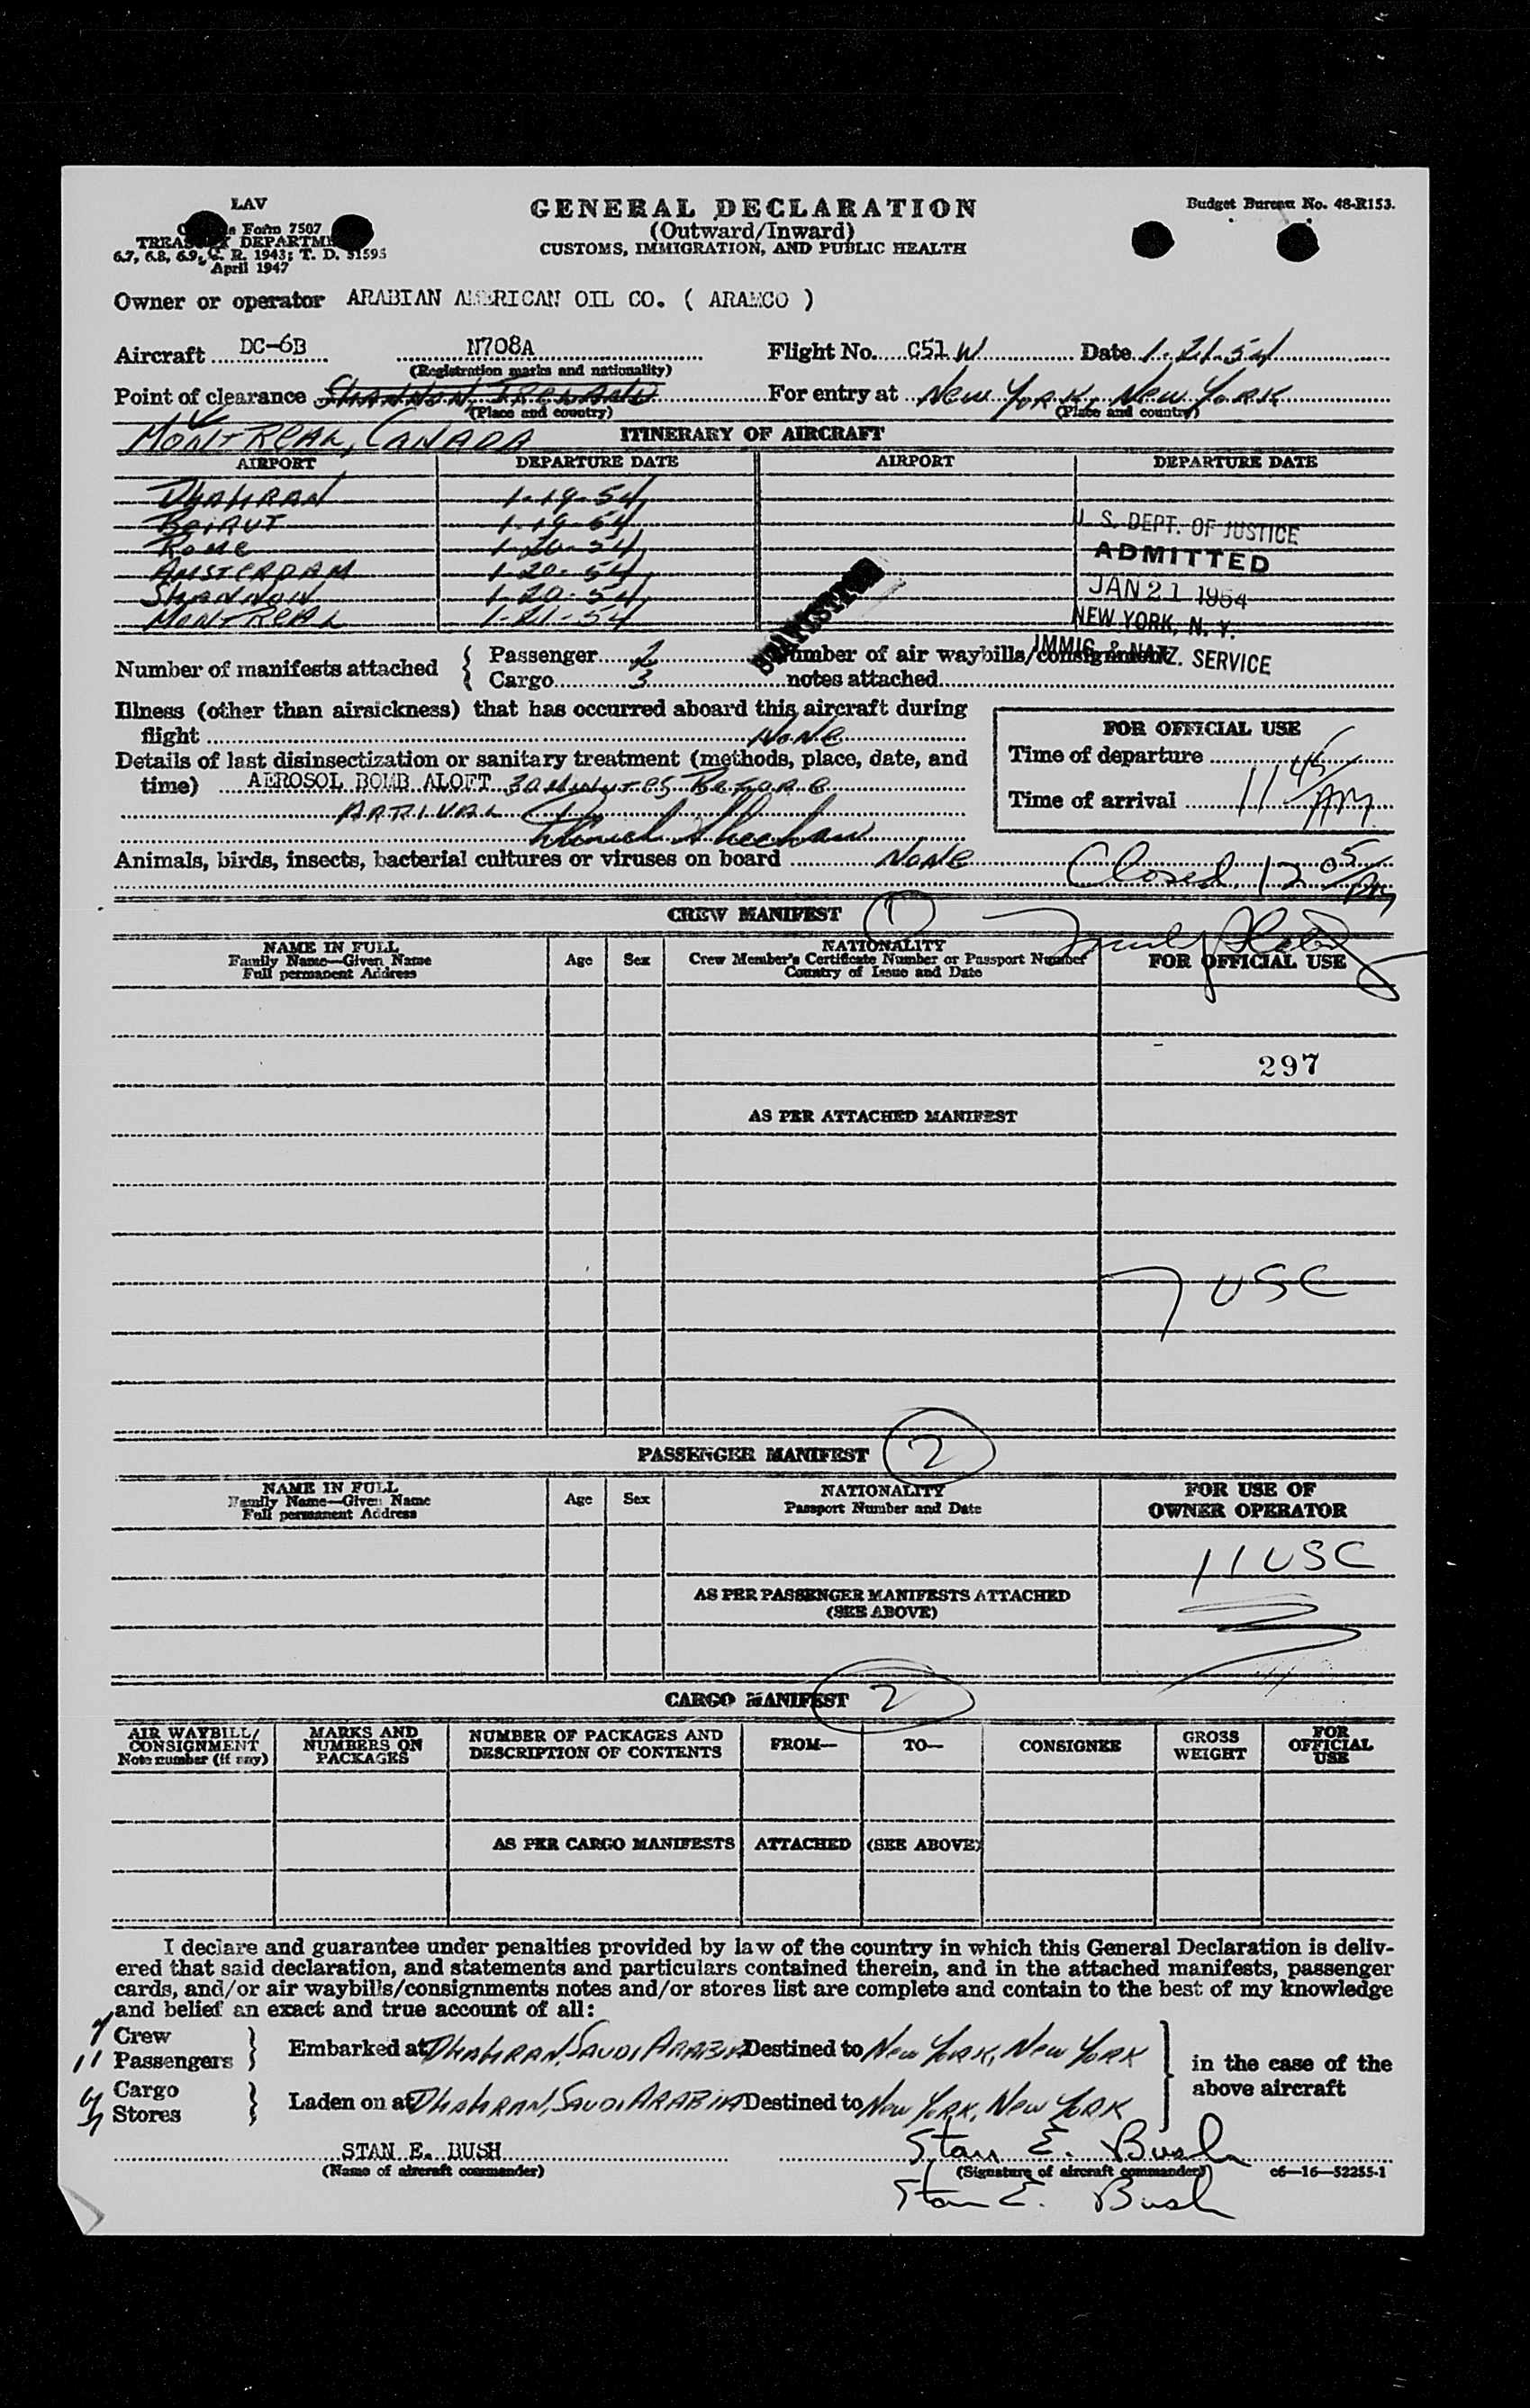 LAV
GENERAL DECLARATION
Budget Bureau No. 48-R153.
Form 7507
(Outward/Inward)
TREASURY DEPARTMENT
CUSTOMS, IMMIGRATION, AND PUBLIC HEALTH
6.7, 6.8, 6.9, C. R. 1943; T. D. 51595
April 1947
Owner or operator ARABIAN AMERICAN OIL CO. ( ARAMCO )
Aircraft DC-6B N708A Flight No. C51 W Date 1-21-54
(Registration marks and nationality)
Point of clearance SHANNON, IRELAND For entry at NEW YORK, NEW YORK
(Place and country) (Place and country)
MONTREAL, CANADA ITINERARY OF AIRCRAFT
AIRPORT DEPARTURE DATE AIRPORT DEPARTURE DATE
DHAHRAN 1-19-54
BEIRUT 1-19-54
ROME 1-20-54
AMSTERDAM 1-20-54
SHANNON 1-20-54
MONTREAL 1-21-54
U. S. DEPT. OF JUSTICE
ADMITTED
JAN 21 1954
NEW YORK, N. Y.
IMMIG. & NATZ. SERVICE
Number of manifests attached { Passenger 2 Number of air waybills/consignment
Cargo 3 notes attached
Illness (other than airsickness) that has occurred aboard this aircraft during
flight NONE
FOR OFFICIAL USE
Time of departure
Details of last disinsectization or sanitary treatment (methods, place, date, and
time) AEROSOL BOMB ALOFT 30 MINUTES BEFORE
ARRIVAL
Time of arrival 11 45 AM
Animals, birds, insects, bacterial cultures or viruses on board NONE
Closed 12 05 PM
CREW MANIFEST 1
NAME IN FULL
Family Name—Given Name
Full permanent Address
Age
Sex
NATIONALITY
Crew Member's Certificate Number or Passport Number
Country of Issue and Date
FOR OFFICIAL USE
297
AS PER ATTACHED MANIFEST
7 USC
PASSENGER MANIFEST 2
NAME IN FULL
Family Name—Given Name
Full permanent Address
Age
Sex
NATIONALITY
Passport Number and Date
FOR USE OF
OWNER OPERATOR
11 USC
AS PER PASSENGER MANIFESTS ATTACHED
(SEE ABOVE)
CARGO MANIFEST 2
AIR WAYBILL/
CONSIGNMENT
Note number (if any)
MARKS AND
NUMBERS ON
PACKAGES
NUMBER OF PACKAGES AND
DESCRIPTION OF CONTENTS
FROM—
TO—
CONSIGNEE
GROSS
WEIGHT
FOR
OFFICIAL
USE
AS PER CARGO MANIFESTS ATTACHED (SEE ABOVE)
I declare and guarantee under penalties provided by law of the country in which this General Declaration is deliv-
ered that said declaration, and statements and particulars contained therein, and in the attached manifests, passenger
cards, and/or air waybills/consignments notes and/or stores list are complete and contain to the best of my knowledge
and belief an exact and true account of all:
7 Crew
11 Passengers } Embarked at DHAHRAN, SAUDI ARABIA Destined to NEW YORK, NEW YORK
in the case of the
above aircraft
Cargo
Stores } Laden on at DHAHRAN, SAUDI ARABIA Destined to NEW YORK, NEW YORK
STAN E. BUSH Stan E. Bush
(Name of aircraft commander) (Signature of aircraft commander) c6—16—52255-1
Stan E. Bush